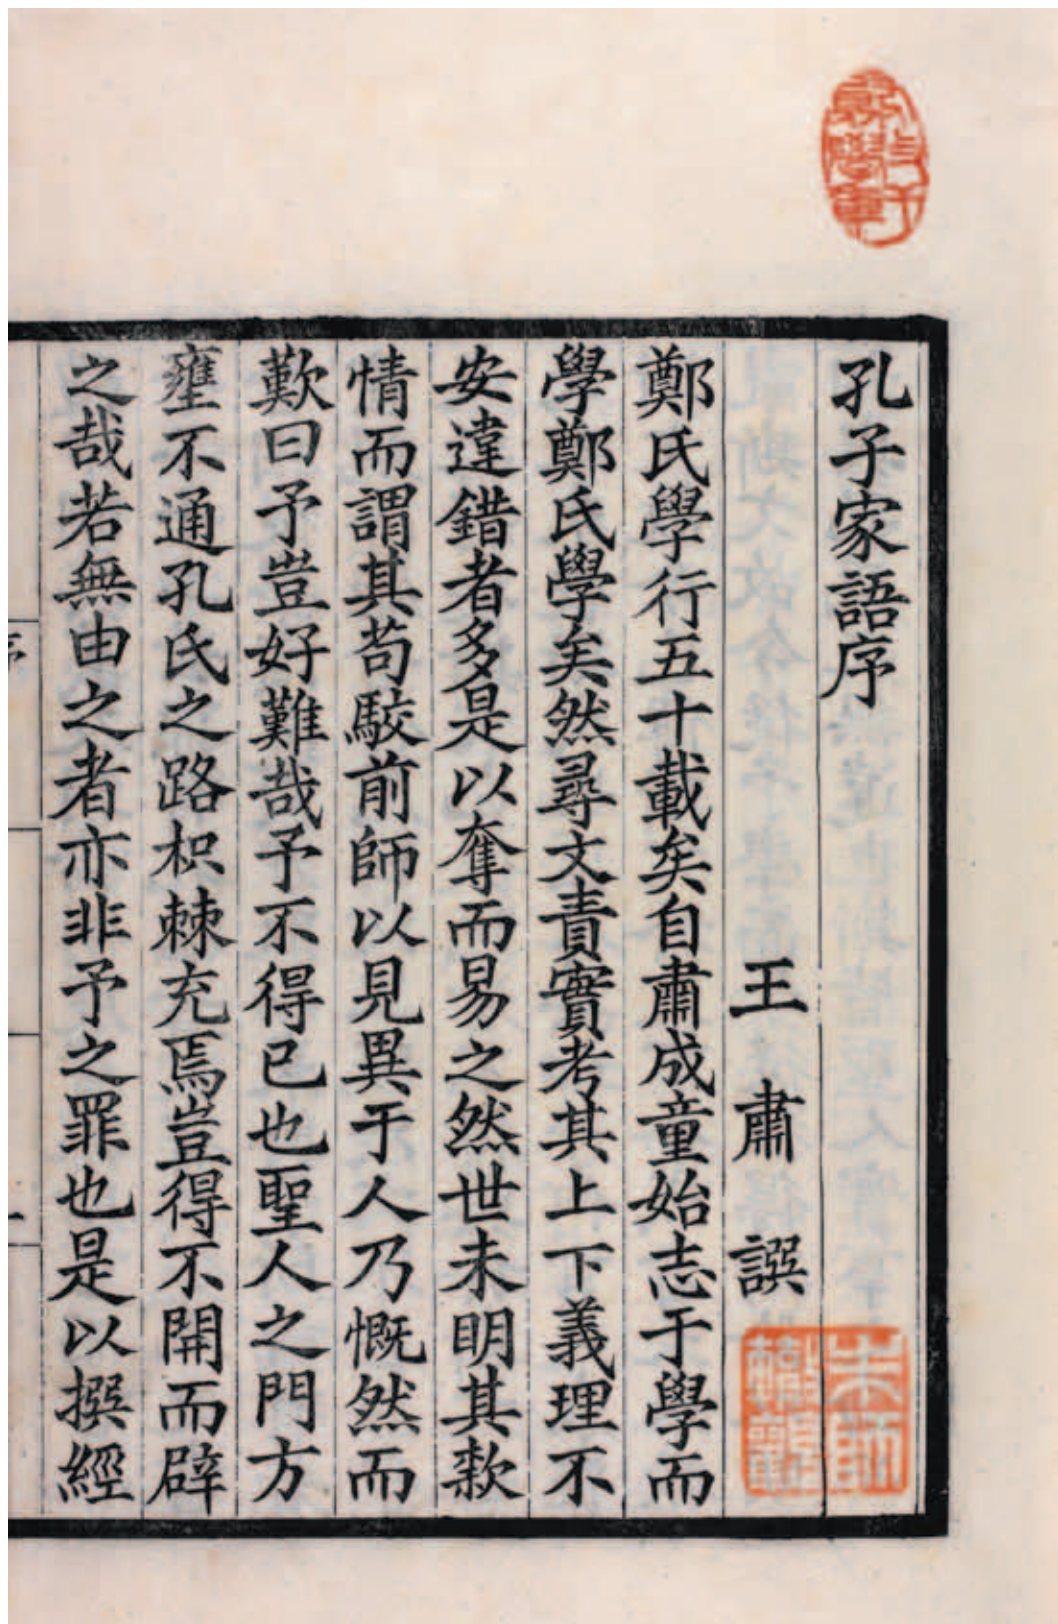 孔子家語序
王肅譔
鄭氏學行五十載矣自肅成童始志于學而
學鄭氏學矣然尋文責實考其上下義理不
安違錯者多是以奪而易之然世未明其款
情而謂其茍駮前師以見異于人乃慨然而
歎曰予豈好難哉予不得已也聖人之門方
壅不通孔氏之路枳棘充焉豈得不開而辟
之哉若無由之者亦非予之罪也是以撰經
序